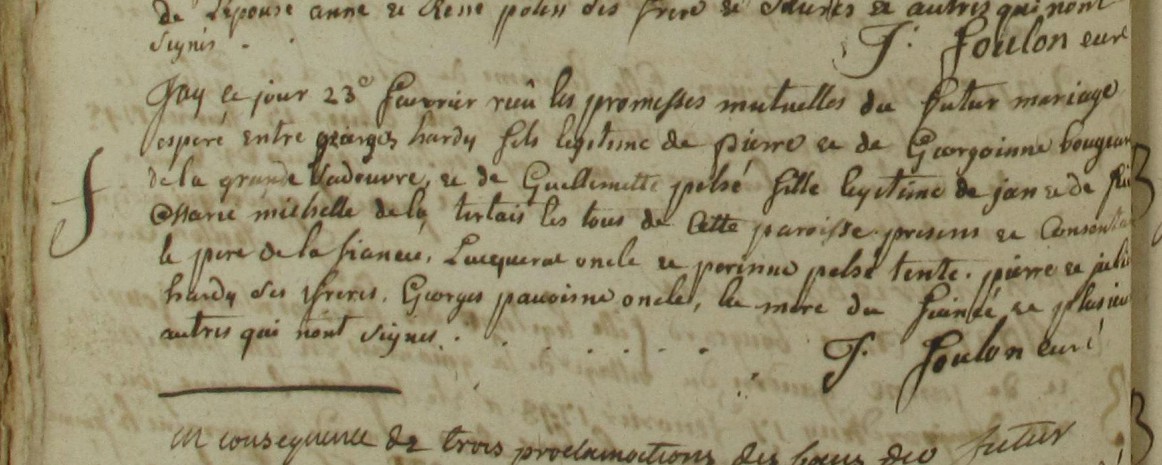 de lepouse anne et René polen des frere et Seures et autres qui nont
signés.
T. Foulon curé
Jay ce jour 23e Feuvrier recu les promesses mutuelles du futur mariage
espere entre georges hardy fils legitime de pierre et de Georgoinne bougear
de la grande Vadouvre, et de Guellemette pelsé fille legitime de jan et de
Marie michelle de la tertais les tous de Cette paroisse presens et Consentan
le pere de la fiancée, oncle et perinne pelsé tente. pierre et julie
hardy ses freres, Georges pavoisne oncles, la mere du fiancé et plusieu
autres qui nont signes.
T. Foulon curé
en consequence de trois proclamations des bans du futur